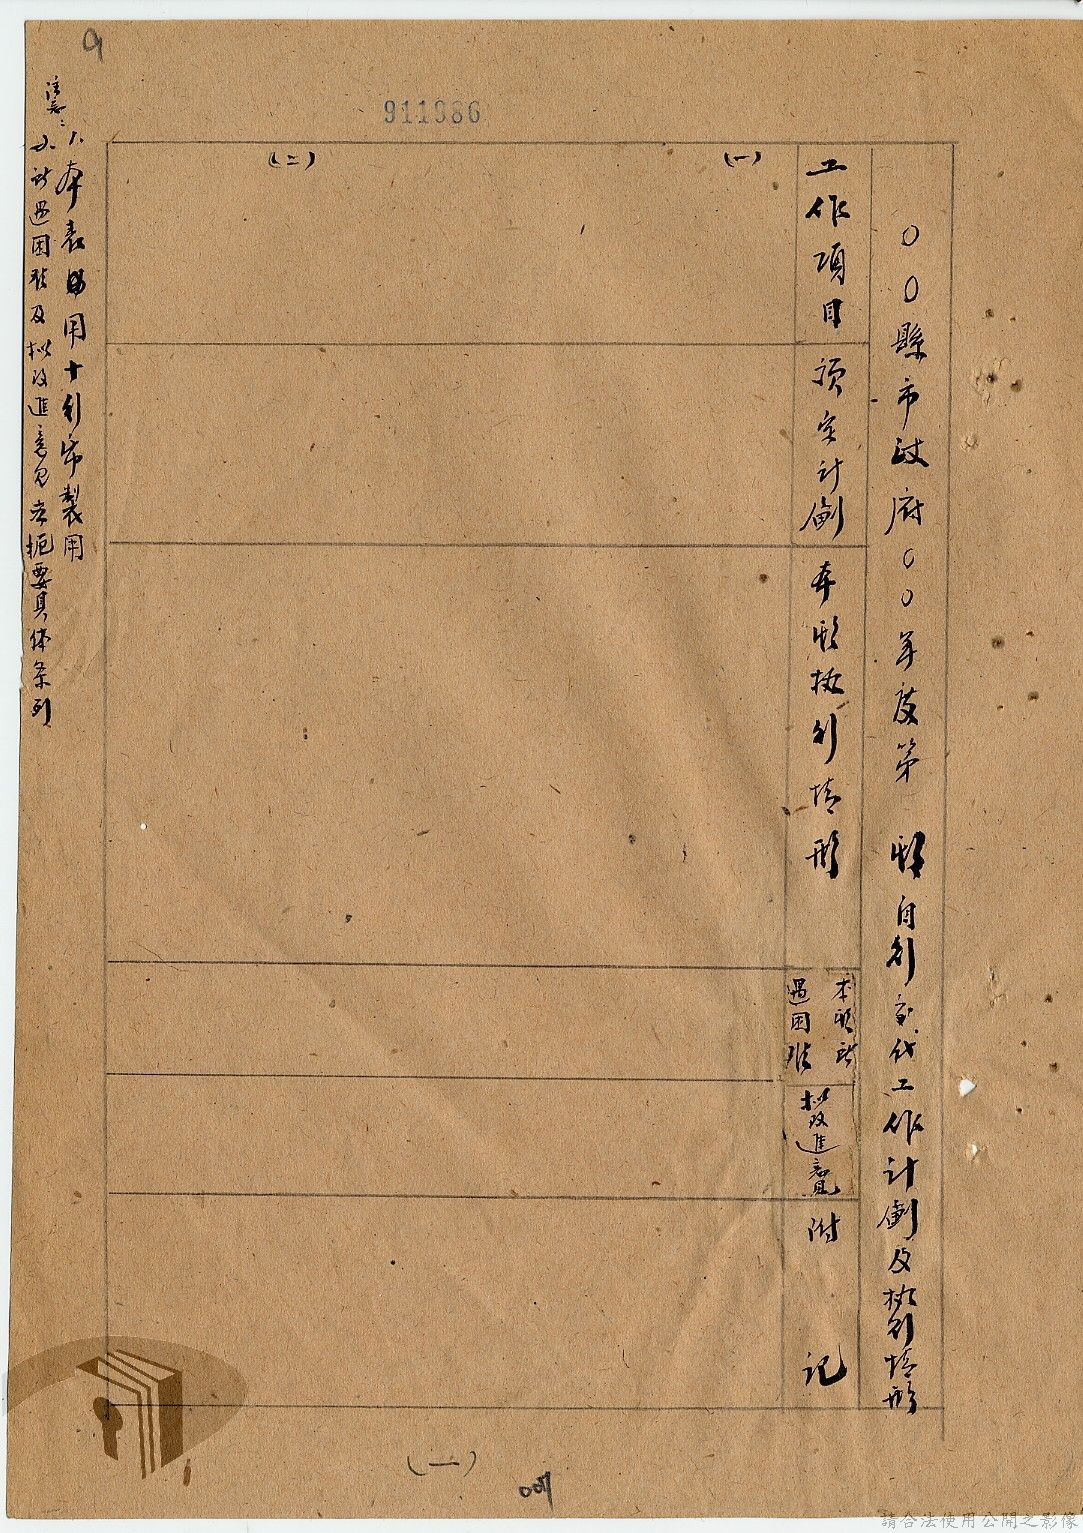 9
911986
〇〇縣市政府〇〇年度第　期自行交代工作計劃及執行情形
工作項目
預定計劃
本期執行情形
本期所
遇困難
拟改進意見
附記
(一)
(二)
注意：
1.本表用十行紙製用
2.所遇困難及拟改進意見应扼要具体条列
(一)
007
請合法使用公開之影像